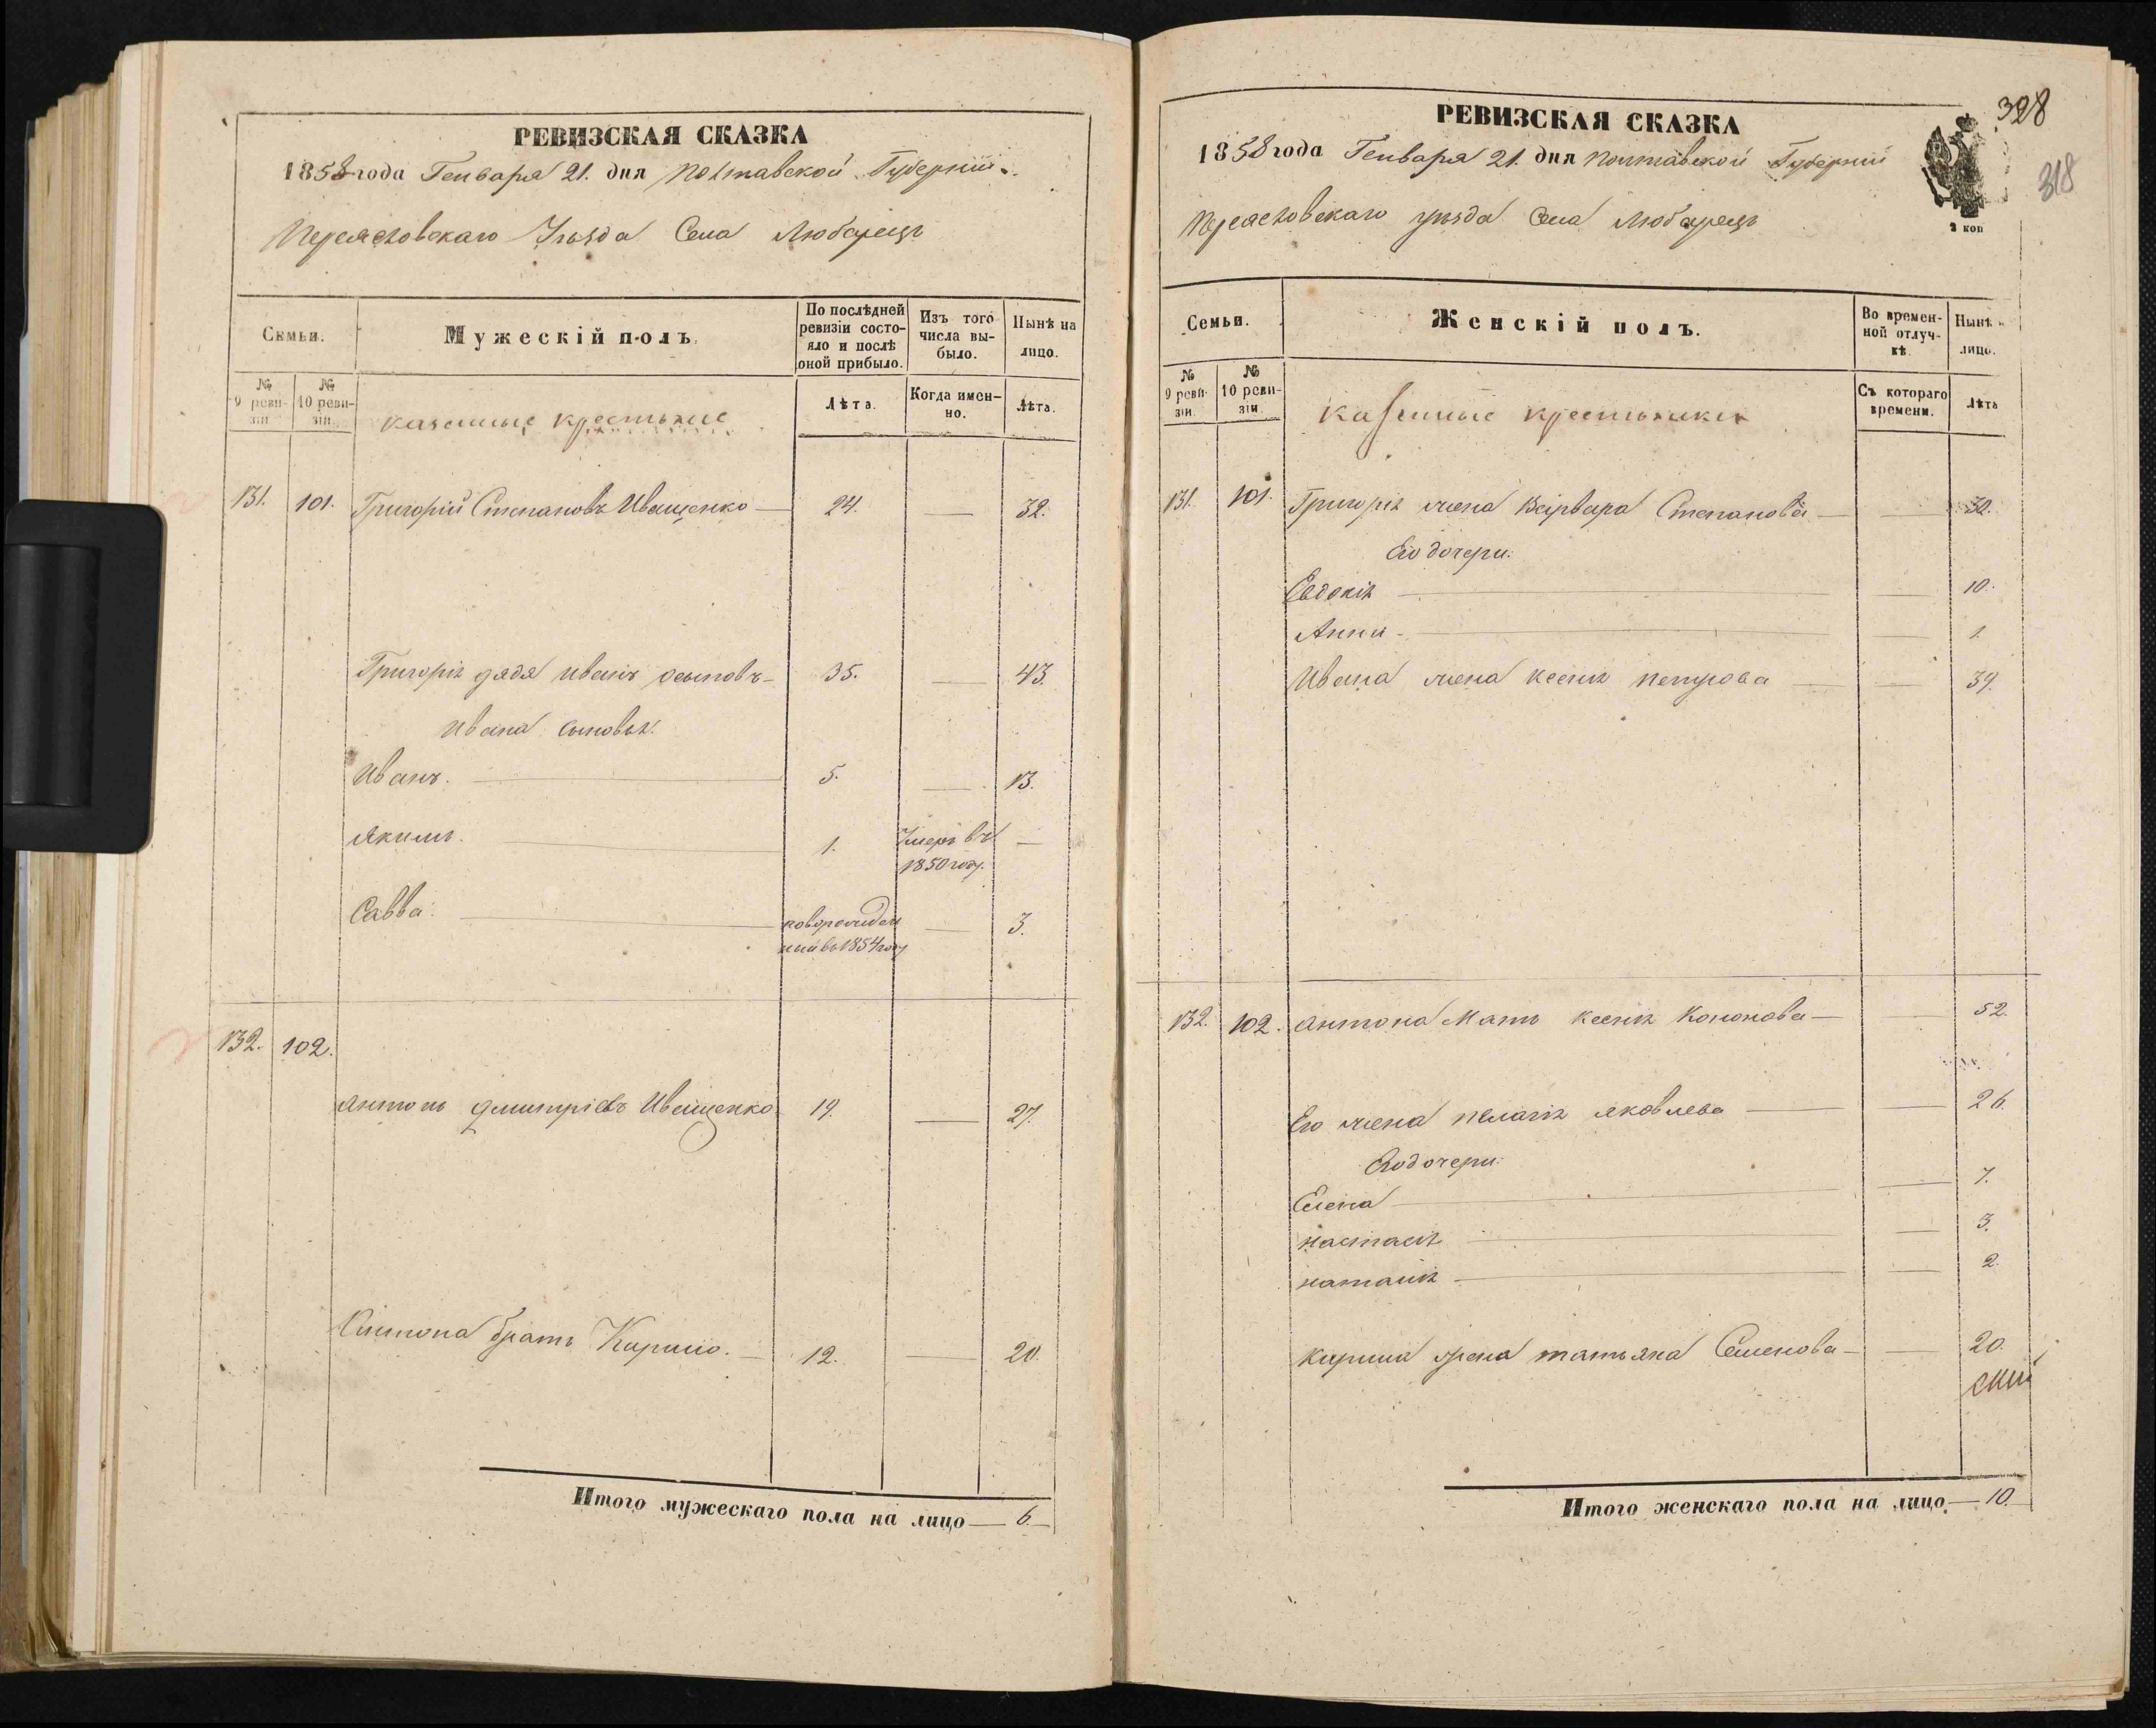 РЕВИЗСКАЯ СКАЗКА
1858 года Генваря 21. дня Полтавской Губерніи
Переясловскаго Уѣзда Села Любарецъ
Семьи.
Мужескій полъ.
По послѣдней ревизіи состояло и послѣ оной прибыло.
Изъ того числа выбыло.
Нынѣ на лицо.
№ 9 ревизіи
№ 10 ревизіи.
казенные крестьяне
Лѣта.
Когда именно.
Лѣта.
131. 101. Григорій Степановъ Иващенко — 24. — 32.
Григорія дядя Иванъ Осиповъ — 35. — 43.
Ивана сыновья:
Иванъ. — 5. — 13.
Якимъ. — 1. Умеръ въ 1850 году. —
Савва. — новорожденный въ 1854 году — 3.
132. 102.
Антонъ Дмитріевъ Иващенко 19. — 27.
Антона братъ Кирило. — 12. — 20.
Итого мужескаго пола на лицо — 6. —
328
318
РЕВИЗСКАЯ СКАЗКА
1858 года Генваря 21. дня Полтавской Губерніи
Переясловскаго уѣзда Села Любарецъ
2 коп
Семьи.
Женскій полъ.
Во временной отлучкѣ.
Нынѣ на лицо.
№ 9 ревизіи.
№ 10 ревизіи.
Казенные крестьянки
Съ котораго времени.
Лѣта
131. 101. Григорія жена Варвара Степанова — — 30.
Его дочери:
Евдокія — — 10.
Анна — — 1.
Ивана жена Ксенія Петрова — — 39.
132. 102. Антона Мать Ксенія Кононова — — 52.
Его жена Пелагія Яковлева — — 26.
Его дочери:
Елена — — 7.
Настасія — — 3.
Наталія — — 2.
Кирила жена Татьяна Семенова — — 20.
Итого женскаго пола на лицо — 10.